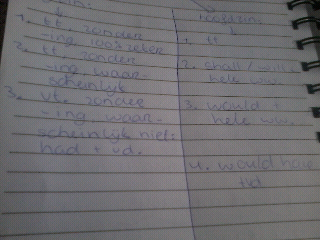 1. tt. zonder
-ing. 100% zeker
2. tt. zonder
-ing waar-
scheinlijk
3. vt. zonder
-ing. waar-
scheinlijk niet:
had + vd.
hoofdzin
1. tt
2. shall/will +
hele ww.
3. would +
hele ww.
4. would have
+vd